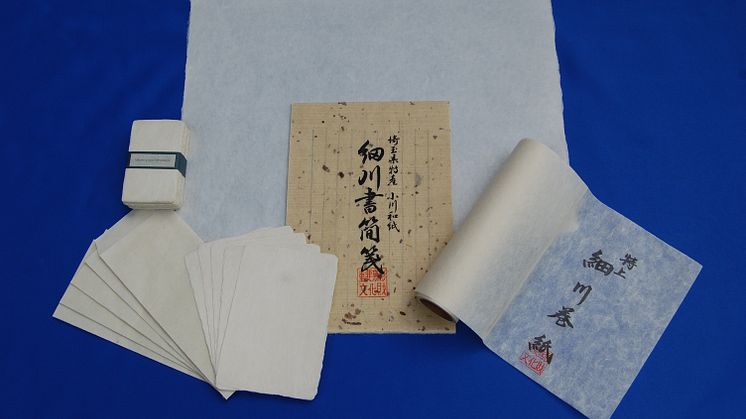 埼玉県特産 小川和紙
細川書簡箋
特上
細川巻紙